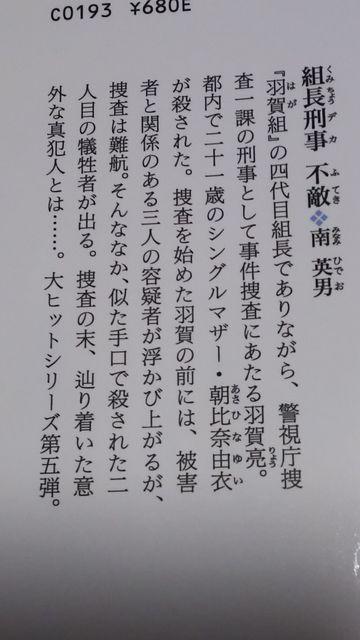 C0193 ¥680E
組長刑事 不敵❖南 英男
くみちょうデカ ふてき みなみ ひでお
『羽賀組』の四代目組長でありながら、警視庁捜
はが
査一課の刑事として事件捜査にあたる羽賀亮。
りょう
都内で二十一歳のシングルマザー・朝比奈由衣
あさひなゆい
が殺された。捜査を始めた羽賀の前には、被害
者と関係のある三人の容疑者が浮かび上がるが、
捜査は難航。そんななか、似た手口で殺された二
人目の犠牲者が出る。捜査の末、辿り着いた意
外な真犯人とは……。大ヒットシリーズ第五弾。